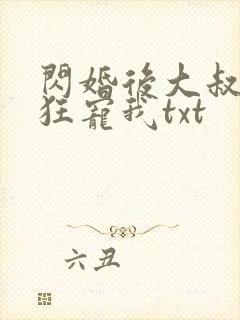 閃婚後大叔
狂寵我txt
六丑